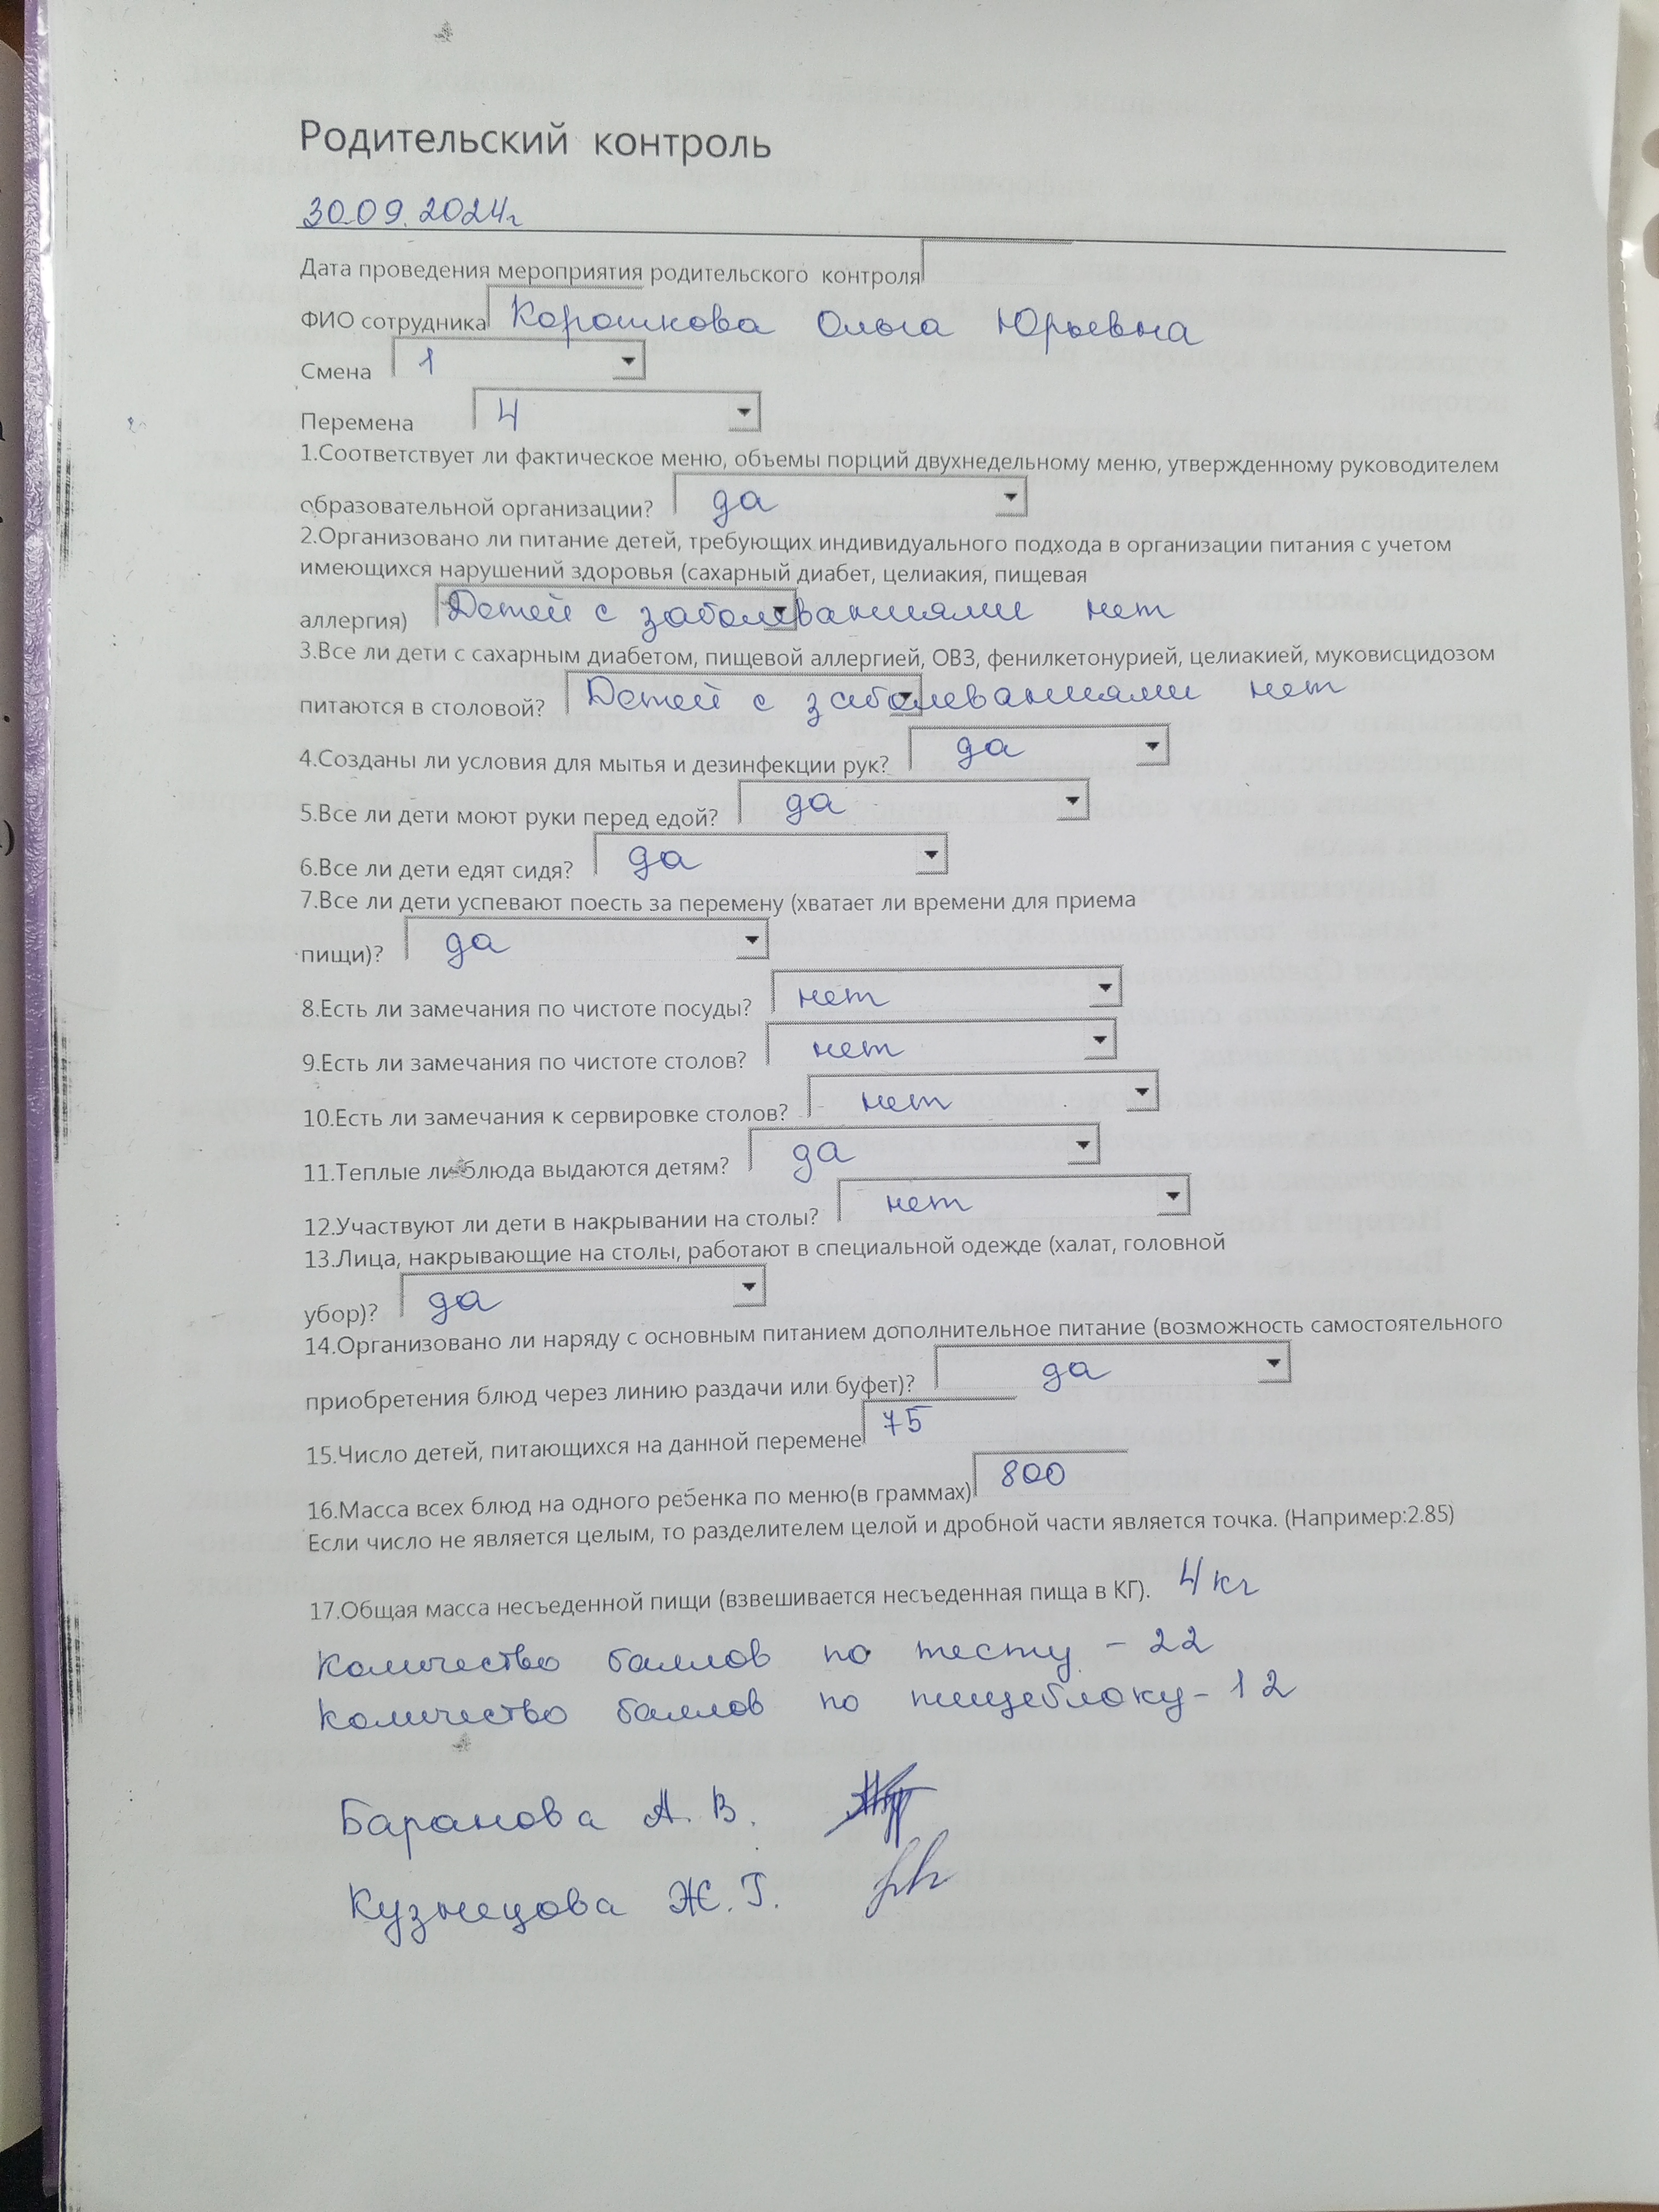 Родительский контроль
30.09.2024г
Дата проведения мероприятия родительского контроля
ФИО сотрудника Корошкова Ольга Юрьевна
Смена 1
Перемена 4
1.Соответствует ли фактическое меню, объемы порций двухнедельному меню, утвержденному руководителем
образовательной организации? да
2.Организовано ли питание детей, требующих индивидуального подхода в организации питания с учетом
имеющихся нарушений здоровья (сахарный диабет, целиакия, пищевая
аллергия) Детей с заболеваниями нет
3.Все ли дети с сахарным диабетом, пищевой аллергией, ОВЗ, фенилкетонурией, целиакией, муковисцидозом
питаются в столовой? Детей с заболеваниями нет
4.Созданы ли условия для мытья и дезинфекции рук? да
5.Все ли дети моют руки перед едой? да
6.Все ли дети едят сидя? да
7.Все ли дети успевают поесть за перемену (хватает ли времени для приема
пищи)? да
8.Есть ли замечания по чистоте посуды? нет
9.Есть ли замечания по чистоте столов? нет
10.Есть ли замечания к сервировке столов? нет
11.Теплые ли блюда выдаются детям? да
12.Участвуют ли дети в накрывании на столы? нет
13.Лица, накрывающие на столы, работают в специальной одежде (халат, головной
убор)? да
14.Организовано ли наряду с основным питанием дополнительное питание (возможность самостоятельного
приобретения блюд через линию раздачи или буфет)? да
15.Число детей, питающихся на данной перемене 75
16.Масса всех блюд на одного ребенка по меню(в граммах) 800
Если число не является целым, то разделителем целой и дробной части является точка. (Например:2.85)
17.Общая масса несъеденной пищи (взвешивается несъеденная пища в КГ). 4 кг
Количество баллов по тесту - 22
Количество баллов по пищеблоку - 12
Баранова А. В.
Кузнецова Ж. Г.